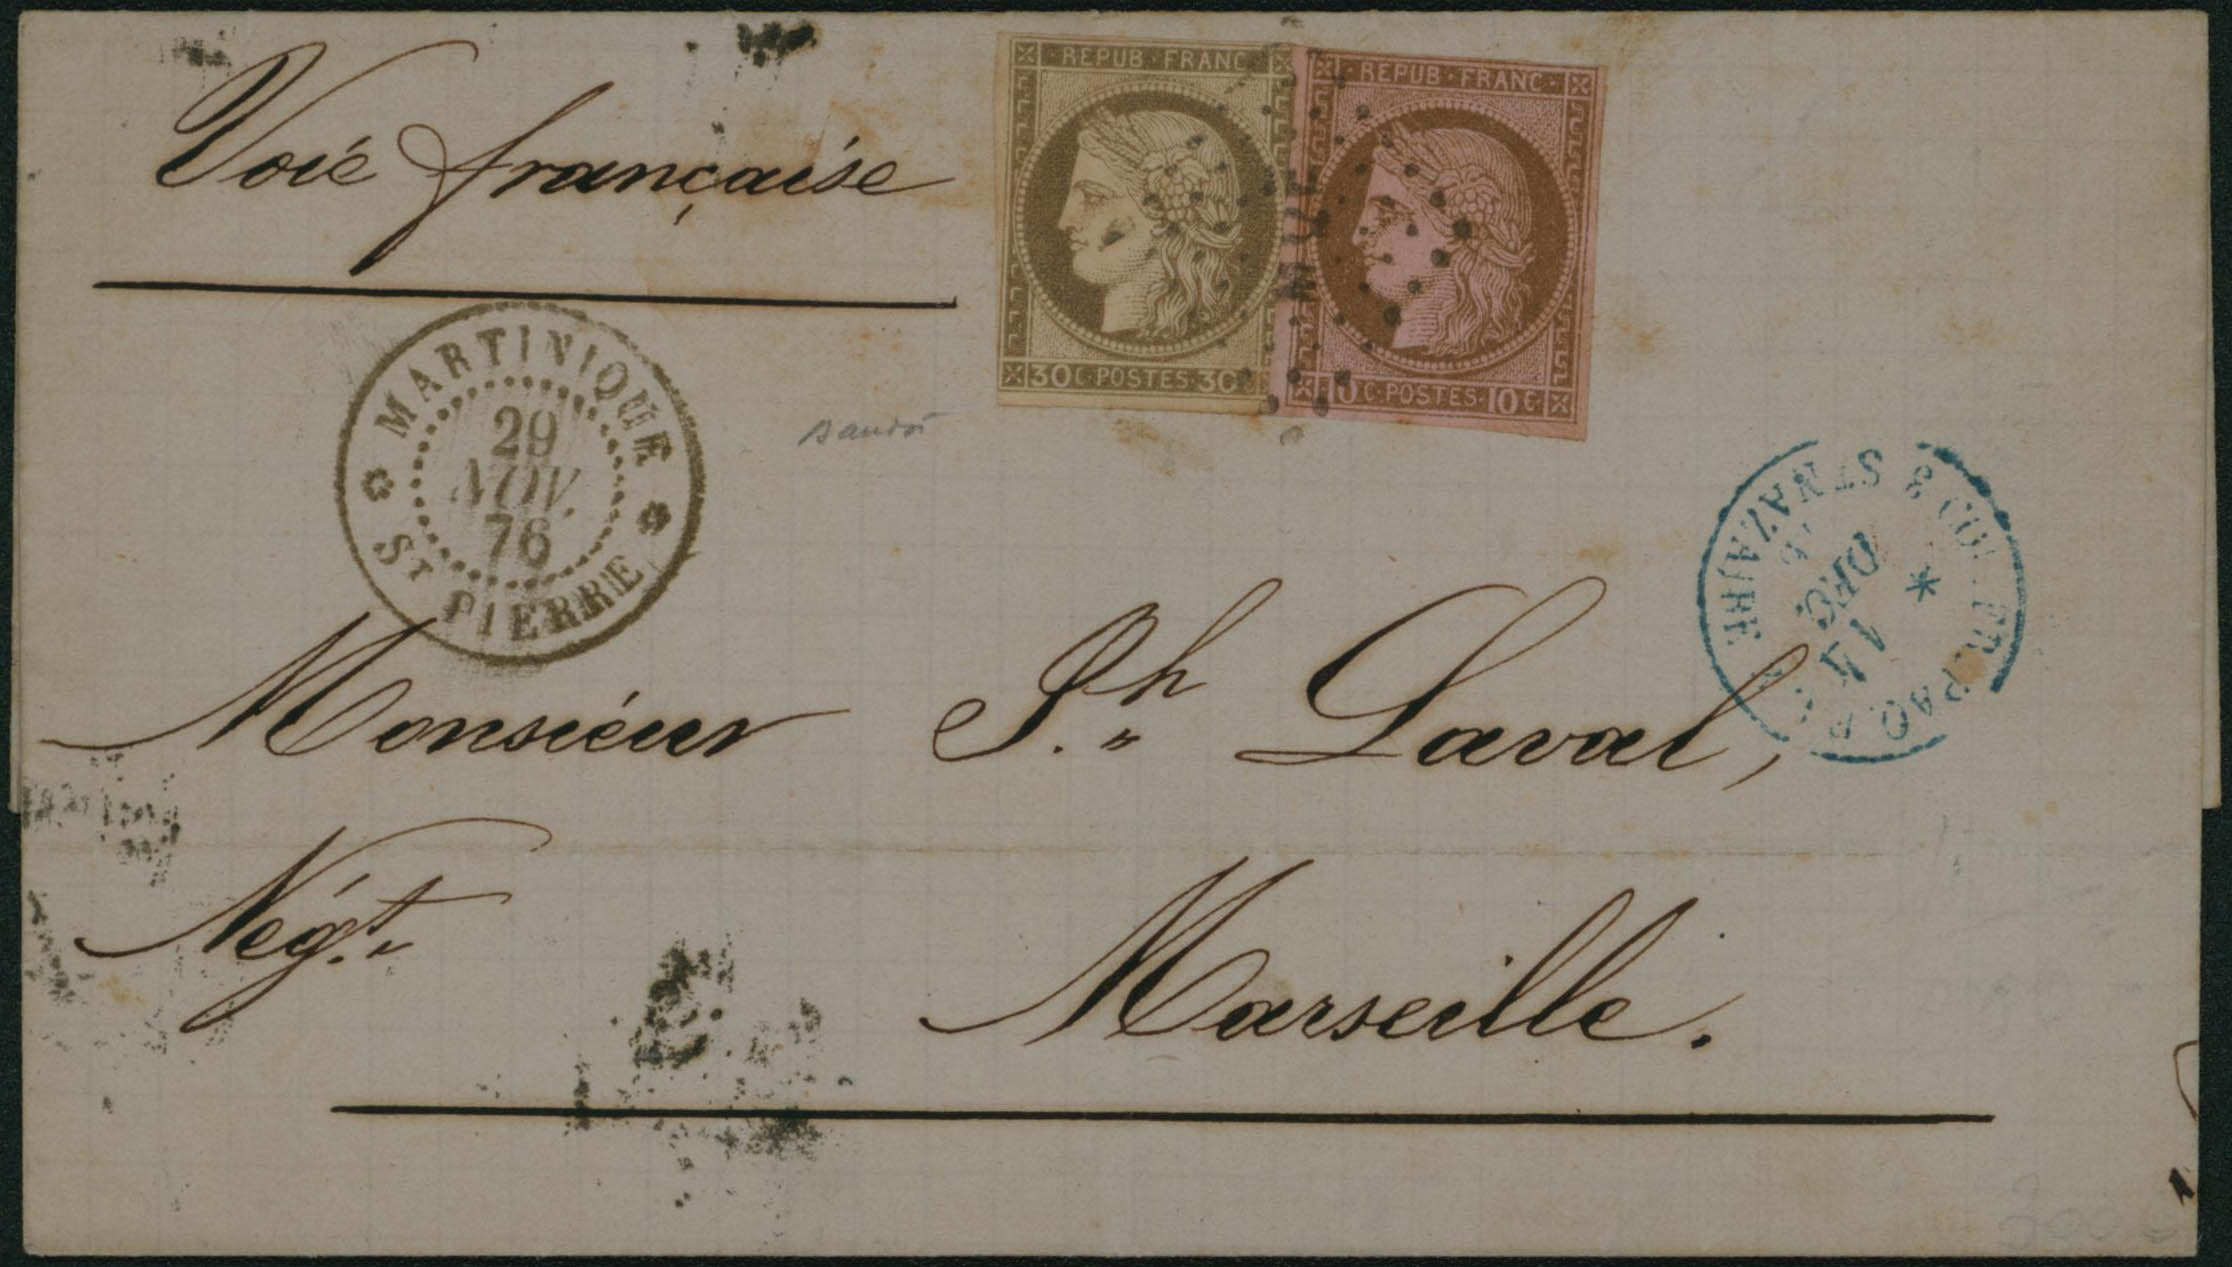 Voie française
REPUB · FRANC
30 C · POSTES · 30 C
REPUB · FRANC ·
10 C · POSTES · 10 C
MQE
MARTINIQUE
29
NOV.
76
ST PIERRE
COL. FR. PAQ. FR.
ST NAZAIRE
14
DEC.
76
Monsieur Ph. Laval,
Négt.
Marseille.